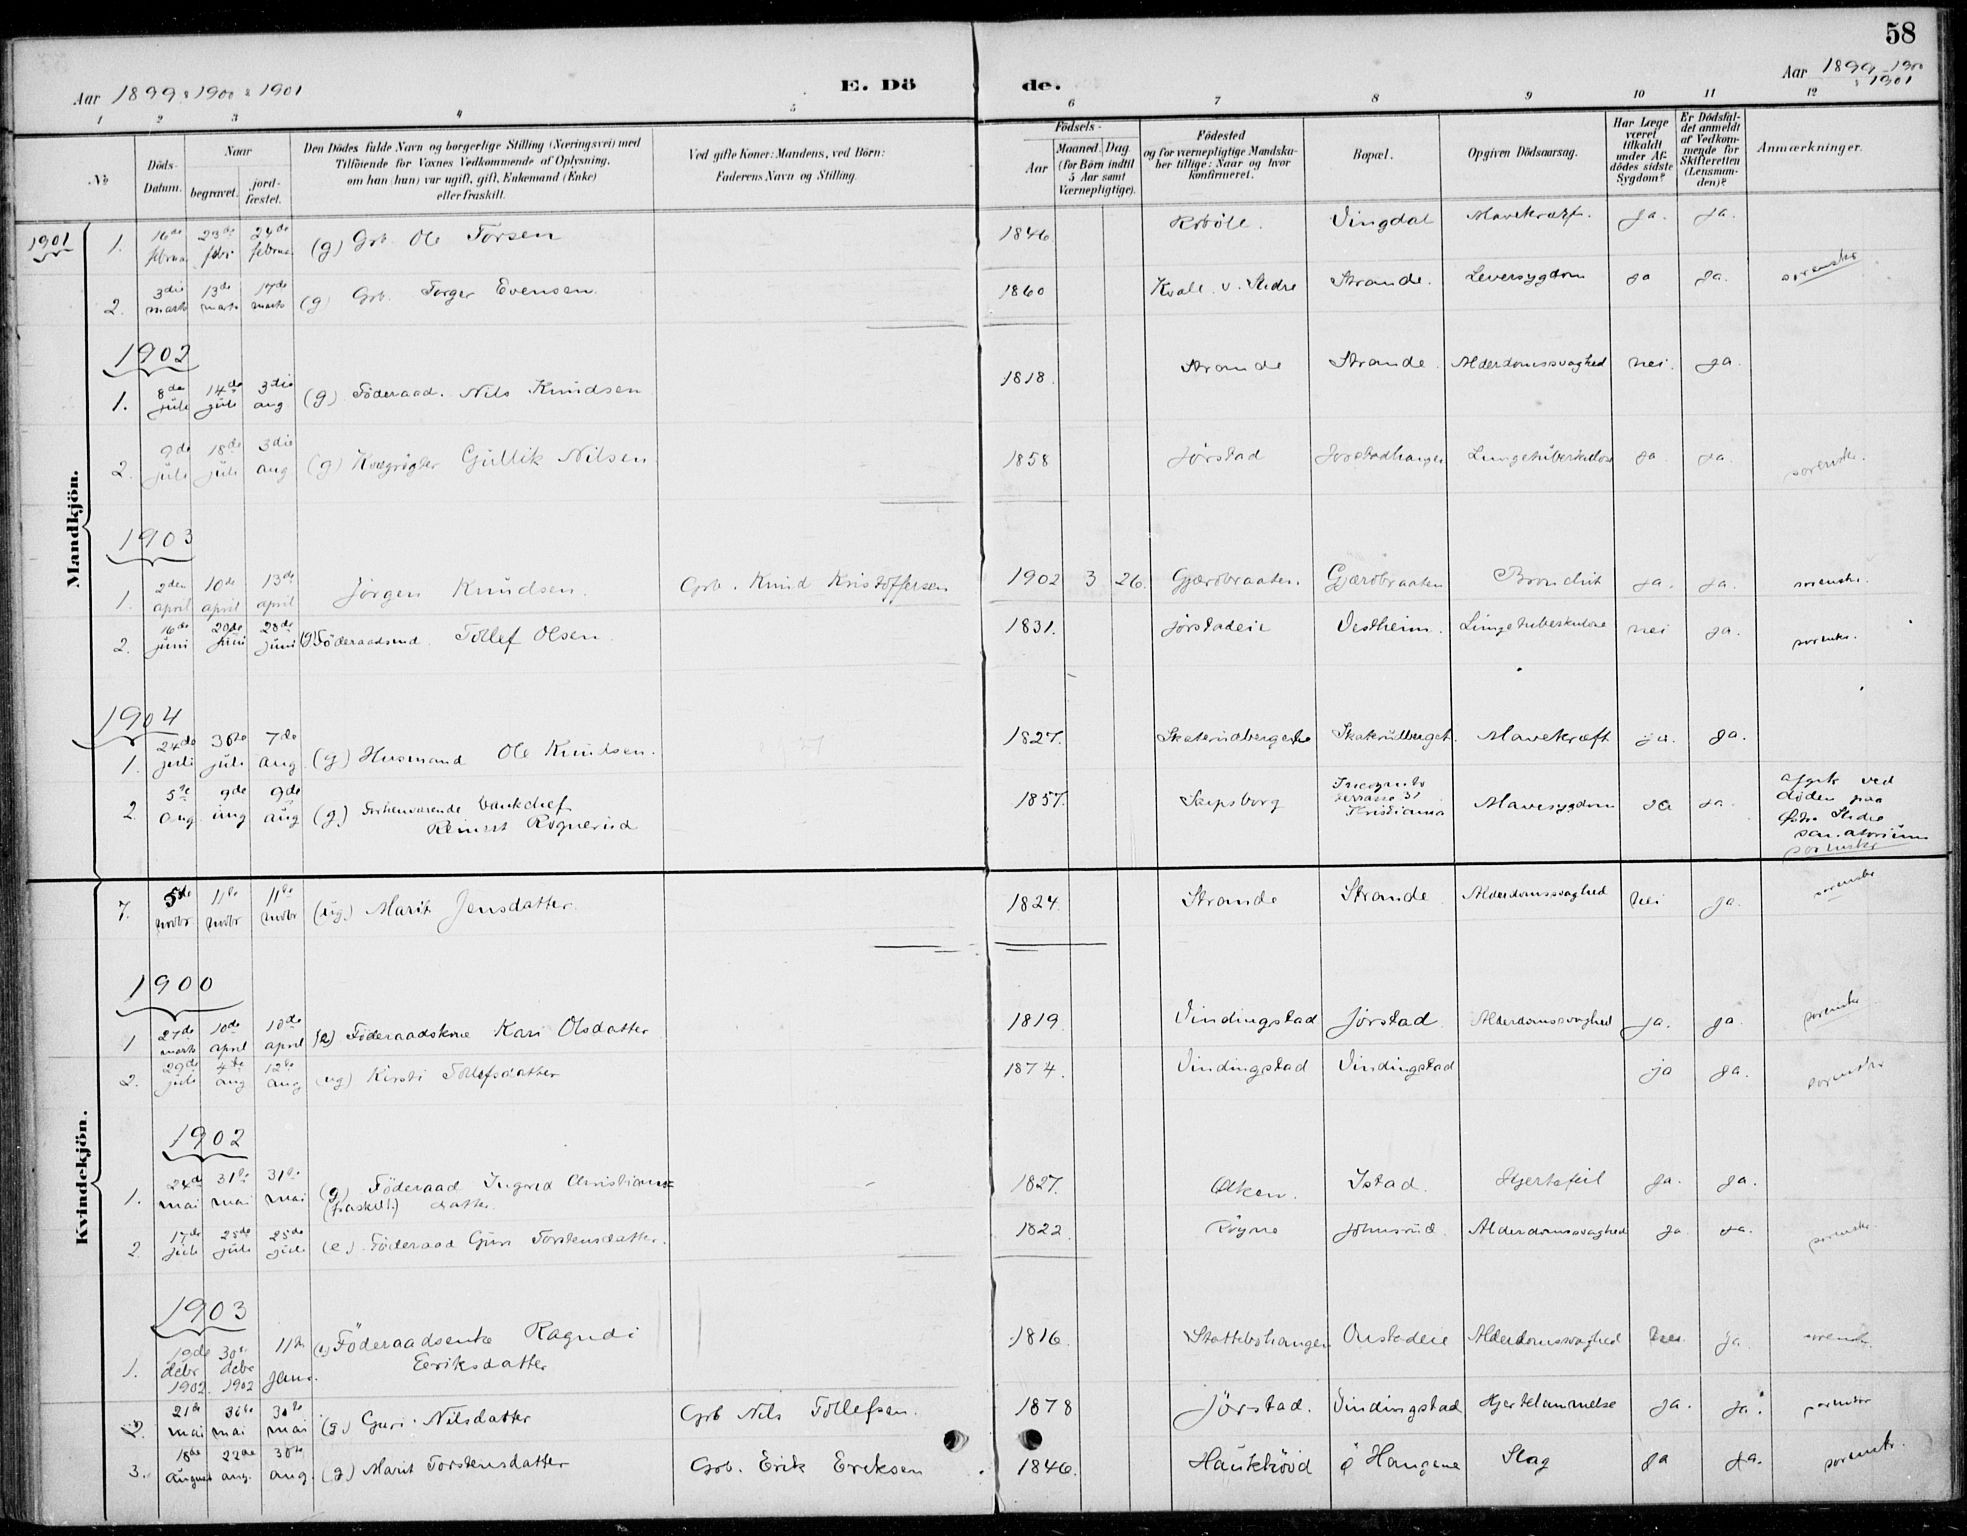 58
Aar 1899 & 1900 & 1901
E. Dö
de.
Aar 1899 1900
& 1901
1 2 3 4 5 6 7 8 9 10 11 12
No
Döds-
Datum.
Naar
begravet.
jord-
fæstet.
Den Dödes fulde Navn og borgerlige Stilling (Næringsvei) med
Tilföiende for Voxnes Vedkommende af Oplysning,
om han (hun) var ugift, gift, Enkemand (Enke)
eller fraskilt.
Ved gifte Koner: Mandens, ved Börn:
Faderens Navn og Stilling.
Födsels-
Aar
Maaned. Dag.
(for Börn indtil
5 Aar samt
Værnepligtige).
Födested
og for værnepligtige Mandska-
ber tillige: Naar og hvor
konfirmeret.
Bopæl.
Opgiven Dödsaarsag.
Har Læge
været
tilkaldt
under Af-
dödes sidste
Sygdom?
Er Dödsfal-
det anmeldt
af Vedkom-
mende for
Skifteretten
(Lensman-
den)?
Anmærkninger.
Mandkjön.
1901
1. 16de februa 23de febr 24de februa (g) Grb. Ole Torsen 1846 Vingdal Mavekræft. ja. ja.
2. 3die marts 13de marts 17de marts (g) Grb. Torger Evensen 1860 Kvale v. Slidre Strande. Leversygdom ja ja. sorenskr
1902
1. 8de juli 14de juli 3die aug (g) Föderaad. Nils Knudsen 1818. Strande Strande. Alderdomssvaghed nei. ja.
2. 9de juli 18de juli 3die aug (g) Gullik Nilsen. 1858 Jørstad Jørstadhaugen Lungetuberkulose ja. ja. sorenskr.
1903
1. 2den april 10de april 13de april Jörgen Knudsen. Grb. Knud Kristoffersen 1902 3 26. Gjærdbraaten. Gjærdbraaten Bronchit ja. ja. sorenskr.
2. 16de juni 20de juni 28de juni (g) Föderaadsmd. Tollef Olsen. 1831. Jørstadeie Vestheim. Lungetuberkulose nei ja. sorenskr.
1904
1. 24de juli 30te juli 7de aug (g) Husmand Ole Knudsen. 1827. Skaterudberget. Mavekræft ja. ja.
2. 5te aug 9de aug 9de aug (g) Forhenværende bankchef
Reinert Rognerud 1857. Sarpsborg Incognito
terrasse 31
Kristiania Mavesygdom ja ja. afgik ved
döden paa
Østre Slidre
sanatorium
sorenskr
Kvindekjön.
7. 5te novbr 11te novbr 11te novbr (ug.) Marit Jensdatter. 1824. Strande Strande Alderdomssvaghed nei ja. sorenskr
1900
1 27de marts 10de april 10de april (e) Föderaadskone Kari Olsdatter 1819. Vindingstad Jørstad Alderdomssvaghed ja. ja. sorenskr
2. 29de juli 4te aug 12te aug (ug) Kirsti Tollefsdatter 1874. Vindingstad Vindingstad ja ja. sorenskr
1902
1. 24de mai 31te mai 31te mai (g) Föderaad Ingrid Christians=
(fraskilt.) datter. 1827. Istad. Hjertefeil ja. ja.
2. 17de juli 25de juli 25de juli (e.) Föderaad Guri Torstensdatter. 1822 Røgne Johnsrud. Alderdomssvaghed ja. ja. sorenskr.
1903
1. 19de debr 1902. 30te debr 1902 11te jan. (e) Föderaadsenke Ragndi
Eeriksdatter 1816. Onstadeie Alderdomssvaghed nei. ja. sorenskr.
2. 21de mai 30te mai 30te mai (g.) Guri Nilsdatter Grb Nils Tollefsen. 1878 Jørstad. Vindingstad Hjertelammelse ja. ja. sorenskr
3. 18de august 22de aug. 30te aug. (g) Marit Torstensdatter Grb. Erik Eriksen 1846. Haukhövd ö Haugene Slag ja ja. sorenskr.